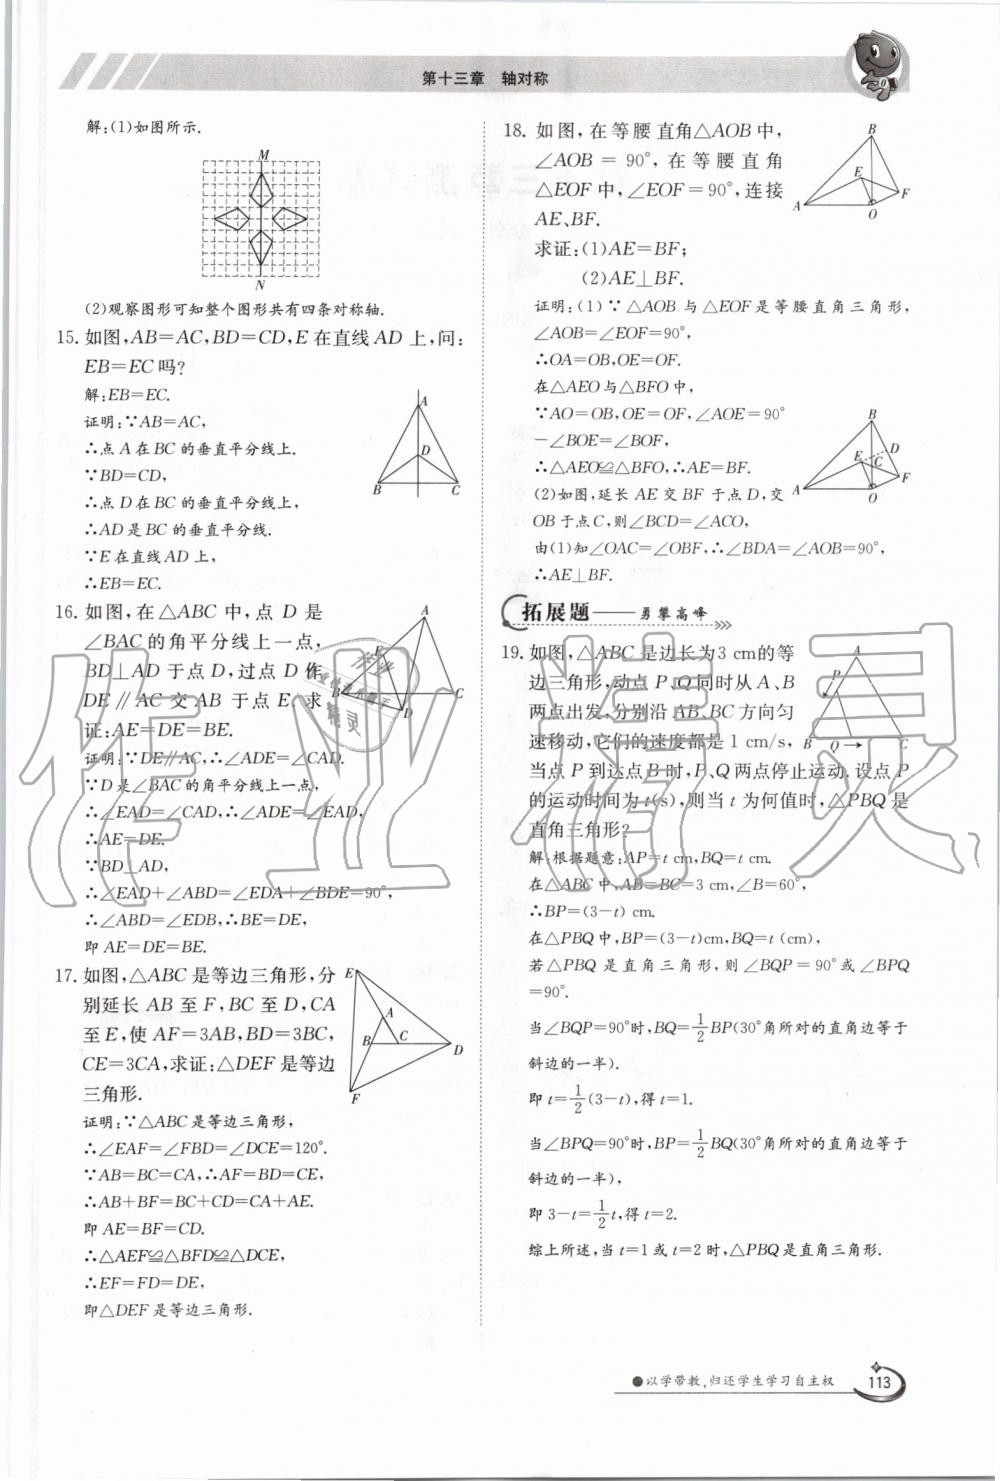 第十三章 轴对称
解:(1)如图所示.
M
N
(2)观察图形可知整个图形共有四条对称轴.
15. 如图,AB=AC,BD=CD,E在直线AD上,问:
EB=EC吗?
解:EB=EC.
证明:∵AB=AC,
∴点A在BC的垂直平分线上.
∵BD=CD,
∴点D在BC的垂直平分线上,
∴AD是BC的垂直平分线.
∵E在直线AD上,
∴EB=EC.
A
D
B C
16. 如图,在△ABC中,点D是
∠BAC的角平分线上一点,
BD⊥AD于点D,过点D作
DE∥AC交AB于点E,求
证:AE=DE=BE.
证明:∵DE∥AC,∴∠ADE=∠CAD.
∵D是∠BAC的角平分线上一点,
∴∠EAD=∠CAD,∴∠ADE=∠EAD,
∴AE=DE.
∵BD⊥AD,
∴∠EAD+∠ABD=∠EDA+∠BDE=90°,
∴∠ABD=∠EDB,∴BE=DE,
即AE=DE=BE.
A
E
B
D
C
17. 如图,△ABC是等边三角形,分
别延长AB至F,BC至D,CA
至E,使AF=3AB,BD=3BC,
CE=3CA,求证:△DEF是等边
三角形.
证明:∵△ABC是等边三角形,
∴∠EAF=∠FBD=∠DCE=120°.
∵AB=BC=CA,∴AF=BD=CE,
∴AB+BF=BC+CD=CA+AE.
即AE=BF=CD.
∴△AEF≌△BFD≌△DCE,
∴EF=FD=DE,
即△DEF是等边三角形.
E
A
B C
D
F
18. 如图,在等腰直角△AOB中,
∠AOB=90°,在等腰直角
△EOF中,∠EOF=90°,连接
AE、BF.
求证:(1)AE=BF;
(2)AE⊥BF.
证明:(1)∵△AOB与△EOF是等腰直角三角形,
∠AOB=∠EOF=90°,
∴OA=OB,OE=OF.
在△AEO与△BFO中,
∵AO=OB,OE=OF,∠AOE=90°
-∠BOE=∠BOF,
∴△AEO≌△BFO,∴AE=BF.
(2)如图,延长AE交BF于点D,交
OB于点C,则∠BCD=∠ACO,
由(1)知∠OAC=∠OBF,∴∠BDA=∠AOB=90°,
∴AE⊥BF.
B
E
F
A
O
B
D
E C
F
A
O
拓展题——勇攀高峰
19. 如图,△ABC是边长为3 cm的等
边三角形,动点P、Q同时从A、B
两点出发,分别沿AB、BC方向匀
速移动,它们的速度都是1 cm/s,
当点P到达点B时,P、Q两点停止运动.设点P
的运动时间为t(s),则当t为何值时,△PBQ是
直角三角形?
解:根据题意:AP=t cm,BQ=t cm.
在△ABC中,AB=BC=3 cm,∠B=60°,
∴BP=(3-t) cm.
在△PBQ中,BP=(3-t)cm,BQ=t (cm),
若△PBQ是直角三角形,则∠BQP=90°或∠BPQ
=90°.
当∠BQP=90°时,BQ=1/2BP(30°角所对的直角边等于
斜边的一半).
即t=1/2(3-t),得t=1.
当∠BPQ=90°时,BP=1/2BQ(30°角所对的直角边等于
斜边的一半),
即3-t=1/2t,得t=2.
综上所述,当t=1或t=2时,△PBQ是直角三角形.
A
P
B Q→ C
●以学带教,归还学生学习自主权
113
作业精灵